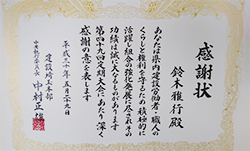 感謝状
鈴木雅行殿
あなたは県内建設労働者・職人の
くらしと権利を守るため積極的に
活躍し組合の強化発展に尽された
功績は誠に大なるものがあります
第四十九回定期大会にあたり深く
感謝の意を表します
平成三十年五月二十九日
建設埼玉本部
中央執行委員長
中村正